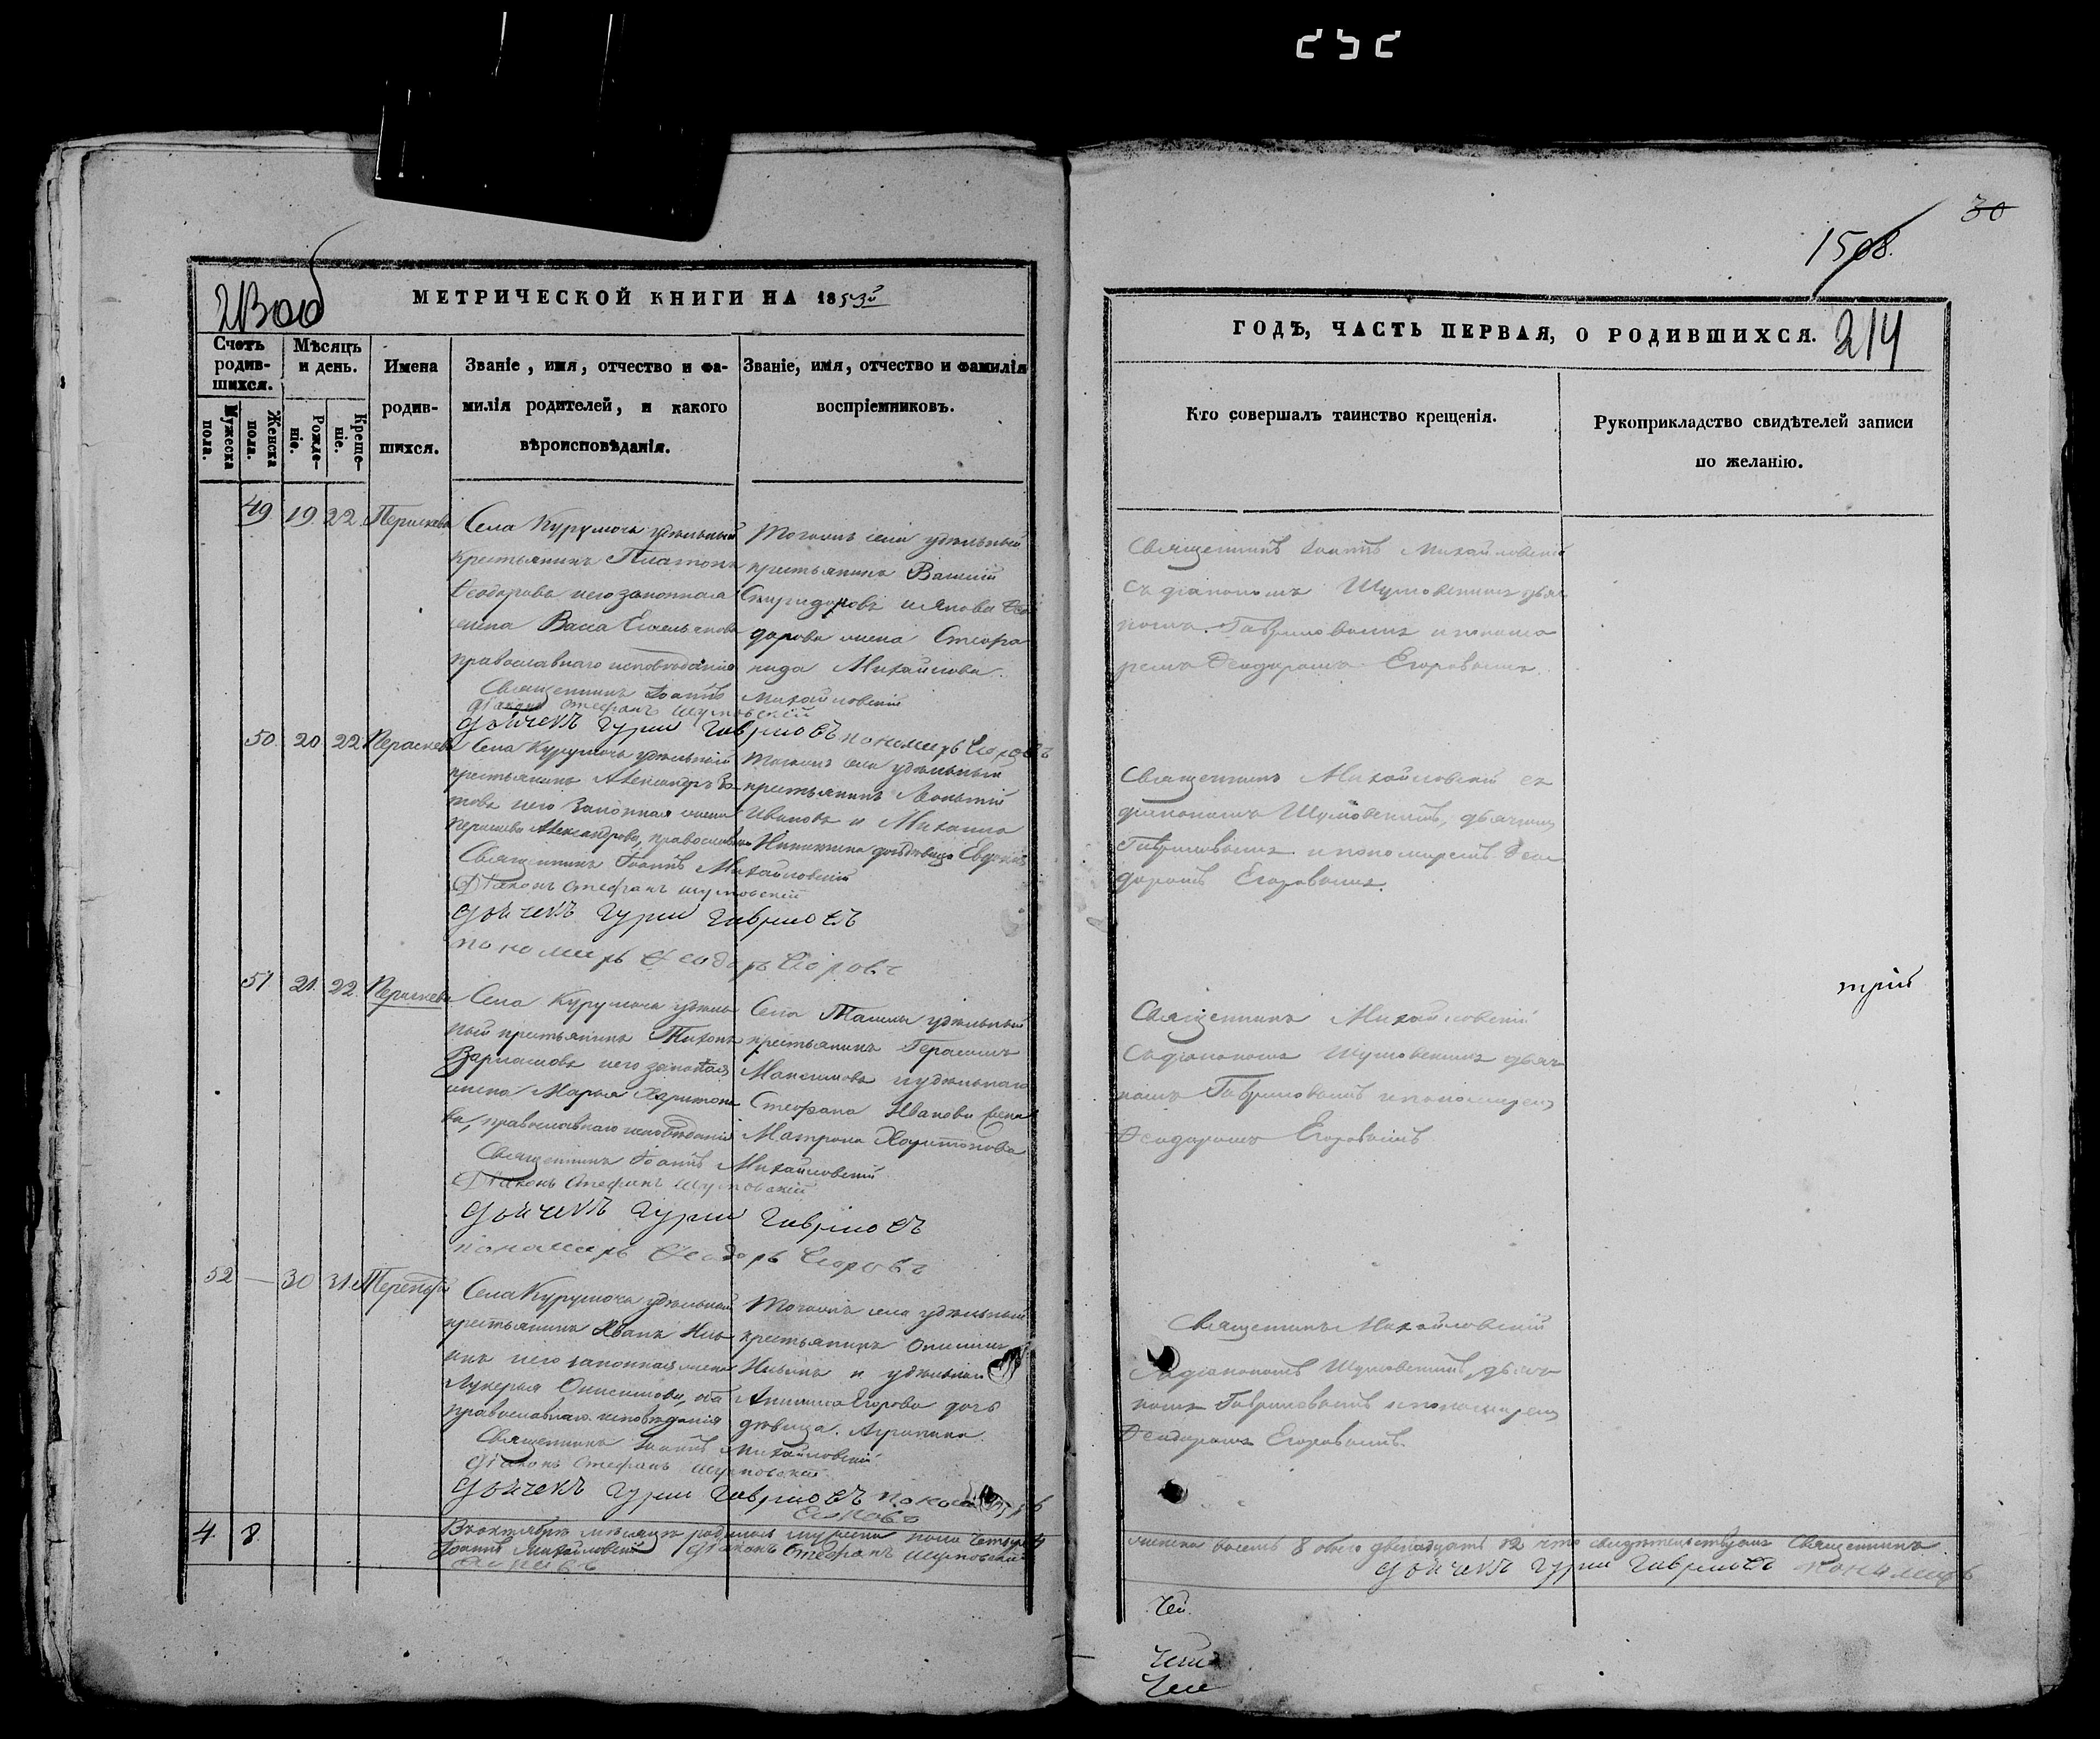 30
1508.
МЕТРИЧЕСКОЙ КНИГИ НА 1853й
Счетъ родившихся.
Мужеска пола.
Женска пола.
Мѣсяцъ и день.
Рожденіе.
Крещеніе.
Имена родившихся.
Званіе, имя, отчество и фамилія родителей, и какого вѣроисповѣданія.
Званіе, имя, отчество и фамилія воспріемниковъ.
ГОДѢ, ЧАСТЬ ПЕРВАЯ, О РОДИВШИХСЯ.
214
Кто совершалъ таинство крещенія.
Рукоприкладство свидѣтелей записи по желанію.
49 19 22 Параскева
Села Курумоча удѣльный
крестьянинъ Платонъ
Ѳеодоровъ и его законная
жена Васса Емельянова
православнаго исповѣданія
Тогожъ села удѣльный
крестьянинъ Василій
Спиридоновъ и Якова Ѳео
дорова жена Стефа
нида Михайлова
Священникъ Іоаннъ Михайловскій
съ діакономъ Шумовскимъ дьяч
комъ Гавриловымъ и понома
ремъ Ѳеодоромъ Егоровымъ
Священникъ Іоаннъ Михайловскій
Діаконъ Стефанъ Шумовскій
Дьячекъ Гурій Гавриловъ пономарь Егоровъ
50 20 22 Параскева
Села Курумоча удѣльный
крестьянинъ Александръ
и его законная жена
Александрова, православн
Тогожъ села удѣльный
крестьянинъ Леонтій
Ивановъ и Михаила
Никитина дочь дѣвица Евдокія
Священникъ Михайловскій съ
діакономъ Шумовскимъ, дьячком
Гавриловымъ и пономаремъ Ѳео
доромъ Егоровымъ.
Священникъ Іоаннъ Михайловскій
Діаконъ Стефанъ Шумовскій
Дьячекъ Гурій Гавриловъ
пономарь Ѳеодоръ Егоровъ
51 21 22 Параскева
Села Курумоча удѣль
ный крестьянинъ Тихонъ
Варламовъ и его законная
жена Марья Харитоно
ва, православнаго исповѣданія
Села удѣльный
крестьянинъ Герасимъ
Максимовъ и удѣльнаго
Стефана Иванова жена
Матрона Харитонова
Священникъ Михайловскій
съ діакономъ Шумовскимъ дьяч
комъ Гавриловымъ и пономарем
Ѳеодоромъ Егоровымъ
Священникъ Іоаннъ Михайловскій
Діаконъ Стефанъ Шумовскій
Дьячекъ Гурій Гавриловъ
пономарь Ѳеодоръ Егоровъ
52 — 30 31 Терентій
Села Курумоча удѣльный
крестьянинъ Иванъ Иль
инъ и его законная жена
Лукерья Онисимова, оба
православнаго исповѣданія
Тогожъ села удѣльный
крестьянинъ
Ильинъ и удѣльнаго
Егорова дочь
дѣвица Агрипина
Священникъ Михайловскій
съ діакономъ Шумовскимъ, дьяч
комъ Гавриловымъ и пономарем
Ѳеодоромъ Егоровымъ.
Священникъ Іоаннъ Михайловскій
Діаконъ Стефанъ Шумовскій
Дьячекъ Гурій Гавриловъ
4 8
В октябрѣ мѣсяцѣ родилось мужеска пола четыре 4
женска восемь 8 обоего двенадцать 12 что свидѣтельствуемъ Священникъ
Іоаннъ Михайловскій Діаконъ Стефанъ Шумовскій
Дьячекъ Гурій Гавриловъ пономарь
Егоровъ